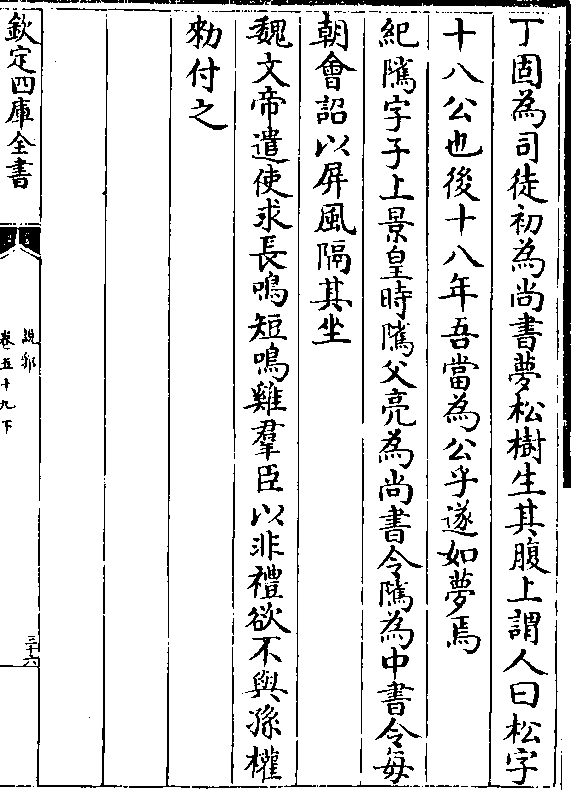 丁固為司徒初為尚書夢松樹生其腹上謂人曰松字
十八公也後十八年吾當為公乎遂如夢焉
紀隲字子上景皇時隲父亮為尚書令隲為中書令每
朝會詔以屏風隔其坐
魏文帝遣使求長鳴短鳴雞羣臣以非禮欲不與孫權
勑付之
欽定四庫全書
說郛
卷五十九下
三十六